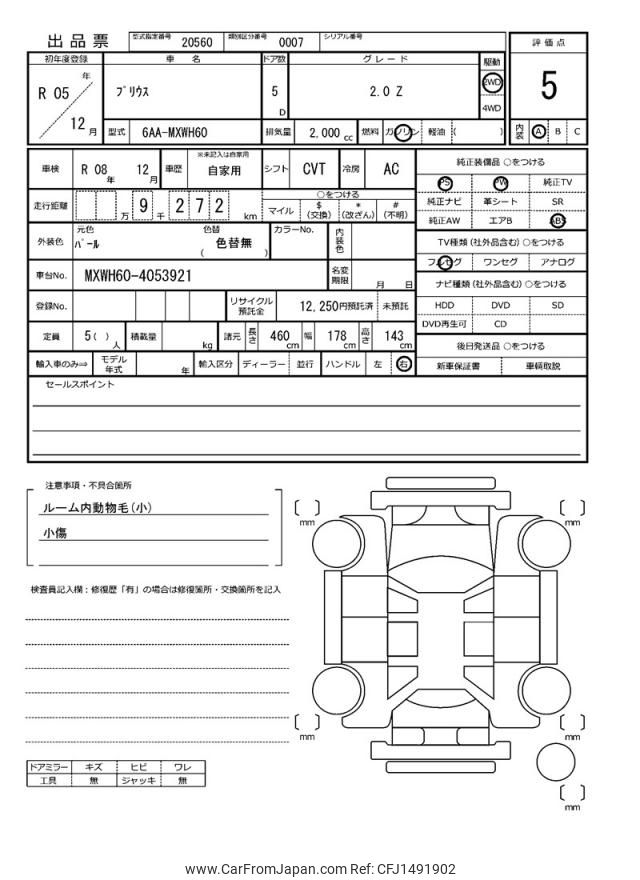 出品票 型式指定番号 20560 類別区分番号 0007 シリアル番号
評価点
5
内装 A B C
初年度登録 車名 ドア数 グレード 駆動
R 05 年 12 月
プリウス
5 D
2.0 Z
2WD
4WD
型式 6AA-MXWH60 排気量 2,000 cc 燃料 ガソリン 軽油 ( )
車検 R 08 年 12 月 車歴 ※未記入は自家用 自家用 シフト CVT 冷房 AC
走行距離 万 9 千 2 7 2 km
○をつける
マイル $ (交換) * (改ざん) # (不明)
外装色 元色 パール 色替 色替無 ( ) カラーNo. 内装色
車台No. MXWH60-4053921 名変期限 月 日
登録No. リサイクル預託金 12,250円預託済 未預託
定員 5 ( ) 人 積載量 kg 諸元 長さ 460 cm 幅 178 cm 高さ 143 cm
輸入車のみ⇒ モデル年式 年 輸入区分 ディーラー 並行 ハンドル 左 右
純正装備品 ○をつける
PS PW 純正TV
純正ナビ 革シート SR
純正AW エアB ABS
TV種類(社外品含む)○をつける
フルセグ ワンセグ アナログ
ナビ種類(社外品含む)○をつける
HDD DVD SD
DVD再生可 CD
後日発送品 ○をつける
新車保証書 車輌取説
セールスポイント
注意事項・不具合箇所
ルーム内動物毛(小)
小傷
検査員記入欄：修復歴「有」の場合は修復箇所・交換箇所を記入
ドアミラー キズ ヒビ ワレ
工具 無 ジャッキ 無
mm
mm
mm
mm
mm
www.CarFromJapan.com Ref: CFJ1491902